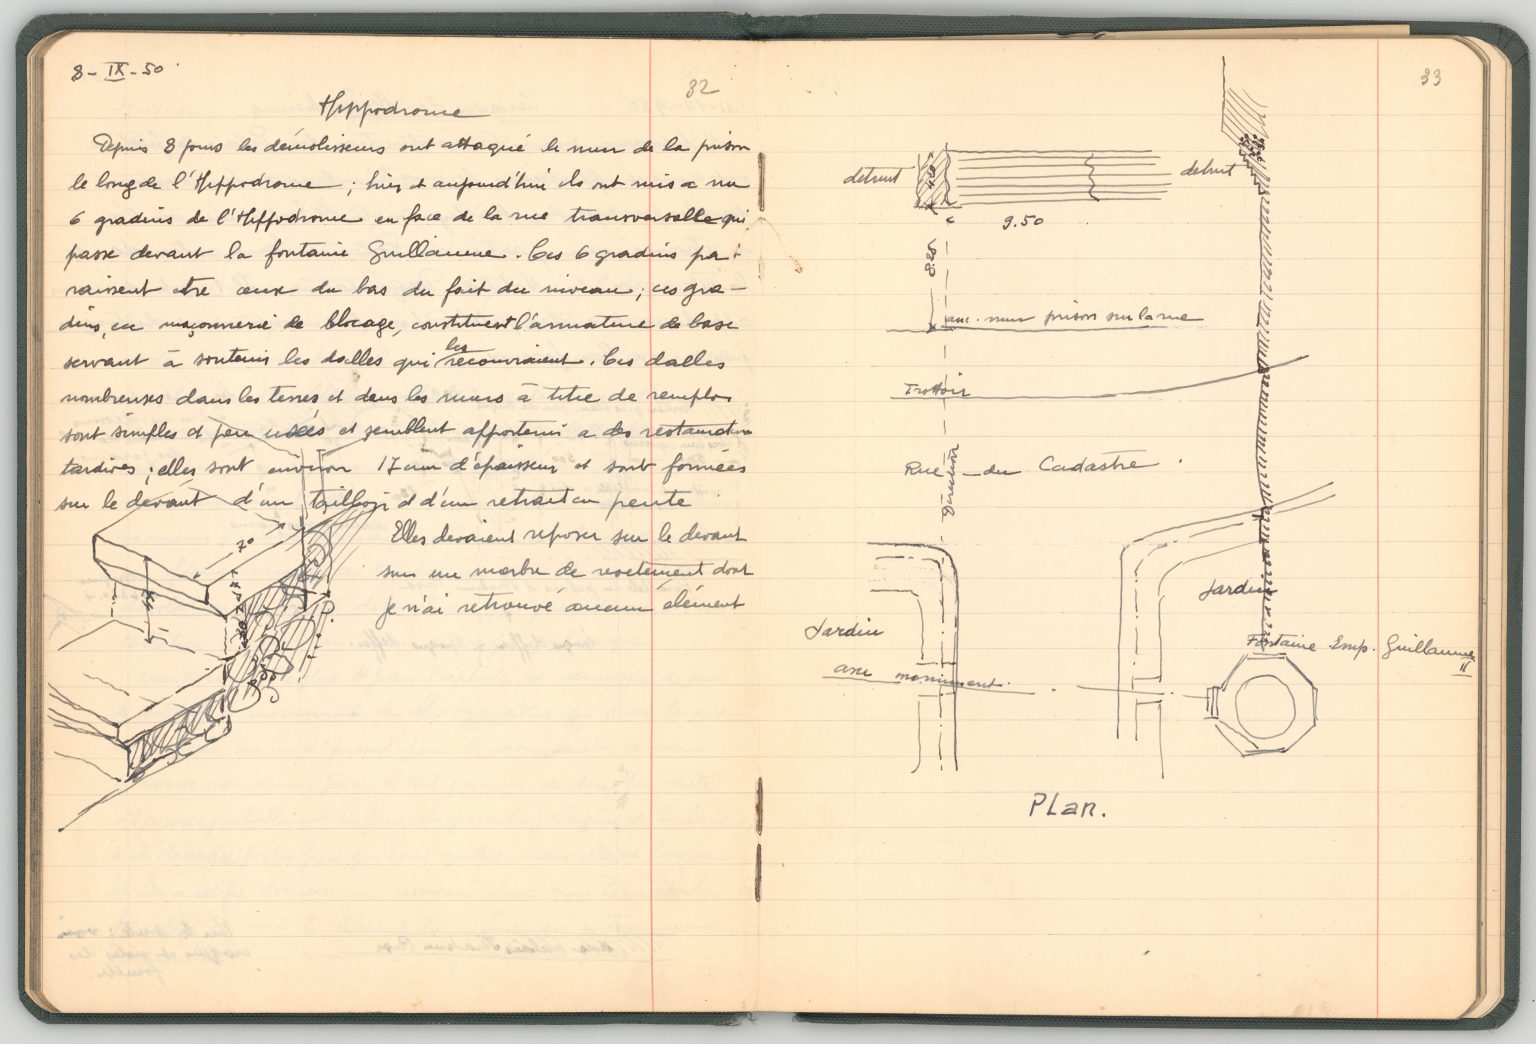 8-IX-50
32
Hippodrome
Depuis 8 jours les démolisseurs ont attaqué le mur de la prison
le long de l'Hippodrome ; hier et aujourd'hui ils ont mis a nu
6 gradins de l'Hippodrome en face de la rue transversalle qui
passe devant la fontaine Guillaume. Ces 6 gradins pa-
raissent etre ceux du bas du fait du niveau ; ces gra-
dins, en maçonnerie de blocage, constituent l'armature de base
servant à soutenir les dalles qui les recouvraient. Ces dalles
nombreuses dans les terres et dans les murs à titre de remploi
sont simples et peu usées et semblent appartenir a des restauration
tardives ; elles sont environ 17 cm d'épaisseur et sont formées
sur le devant d'un tailloir et d'un retrait en pente
Elles devaient reposer sur le devant
sur un marbre de revetement dont
je n'ai retrouvé aucun élément
70
33
détruit
detruit
9.50
8.25
anc. mur prison sur la rue
Trottoir
Rue du Cadastre.
Direction
Jardin
Jardin
Fontaine Emp. Guillaume
II
axe monument.
PLan.